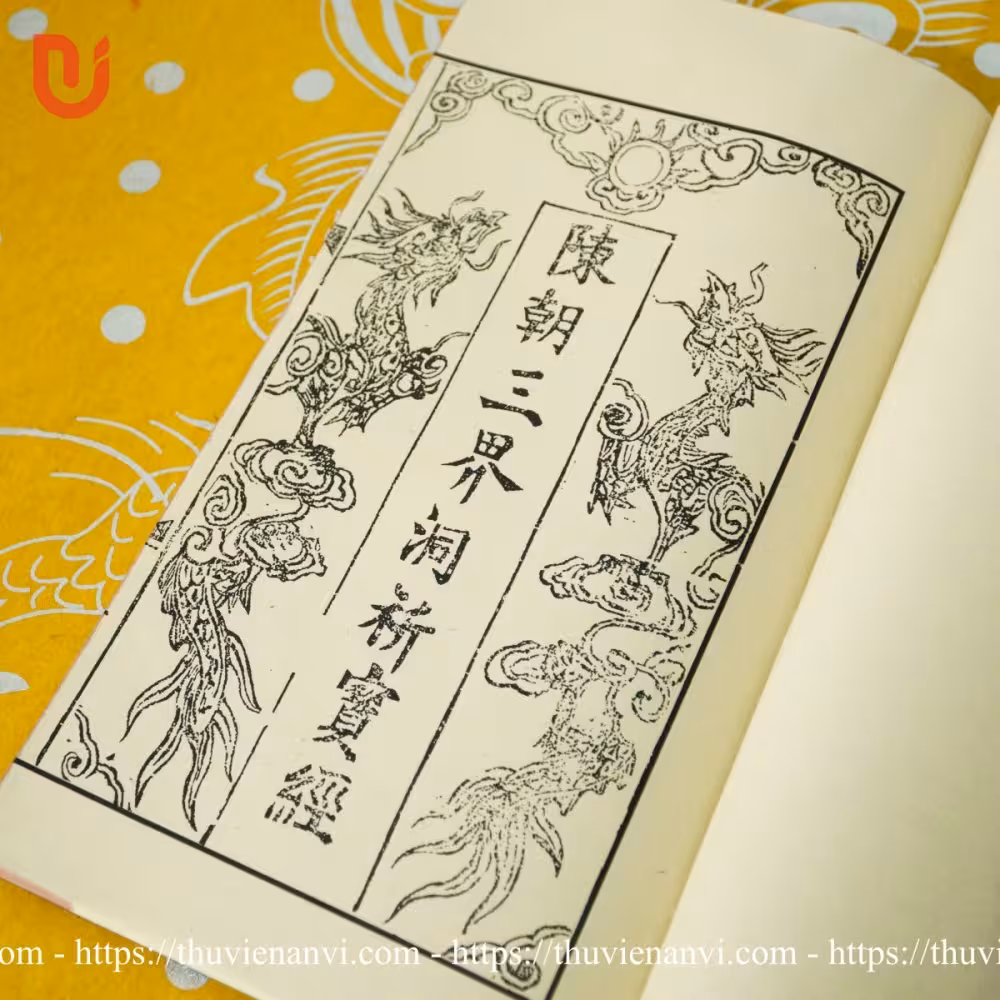 陳朝三界洞祈寶經
om - https://thuvienanvi.com - https://thuvienanvi.com - https://thuvi